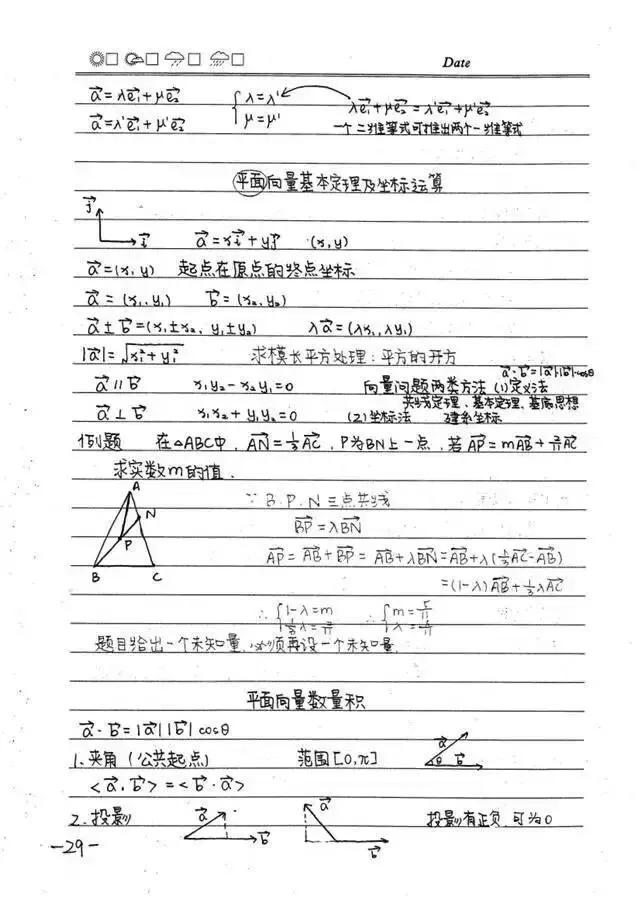 Date
a⃗=λe⃗₁+μe⃗₂ {λ=λ' μ=μ' λe⃗₁+μe⃗₂=λ'e⃗₁+μ'e⃗₂
a⃗=λ'e⃗₁+μ'e⃗₂ 一个二维等式可推出两个一维等式
平面向量基本定理及坐标运算
j⃗ i⃗ a⃗=xi⃗+yj⃗ (x,y)
a⃗=(x,y) 起点在原点的终点坐标
a⃗=(x₁,y₁) b⃗=(x₂,y₂)
a⃗±b⃗=(x₁±x₂, y₁±y₂) λa⃗=(λx₁,λy₁)
|a⃗|=√(x₁²+y₁²) 求模长平方处理:平方的开方
a⃗·b⃗=|a⃗||b⃗|·cosθ
a⃗∥b⃗ x₁y₂-x₂y₁=0 向量问题两类方法 (1)定义法
共线定理、基本定理、基底思想
a⃗⊥b⃗ x₁x₂+y₁y₂=0 (2)坐标法 建系坐标
例题 在△ABC中,AN⃗=⅓AC⃗,P为BN上一点,若AP⃗=mAB⃗+2/11AC⃗
求实数m的值.
A N P B C
∵B.P.N三点共线
BP⃗=λBN⃗
AP⃗=AB⃗+BP⃗=AB⃗+λBN⃗=AB⃗+λ(⅓AC⃗-AB⃗)
=(1-λ)AB⃗+⅓λAC⃗
∴{1-λ=m ⅓λ=2/11 ∴{m=5/11 λ=6/11
题目给出一个未知量,必须再设一个未知量.
平面向量数量积
a⃗·b⃗=|a⃗||b⃗|cosθ
1.夹角(公共起点) 范围[0,π] a⃗ θ b⃗
<a⃗,b⃗>=<b⃗·a⃗>
2.投影 a⃗ b⃗ a⃗ b⃗ 投影有正负,可为0
-29-